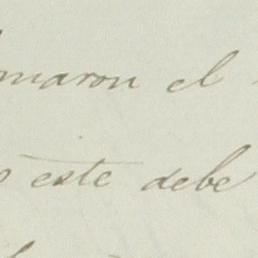 maron el
este debe